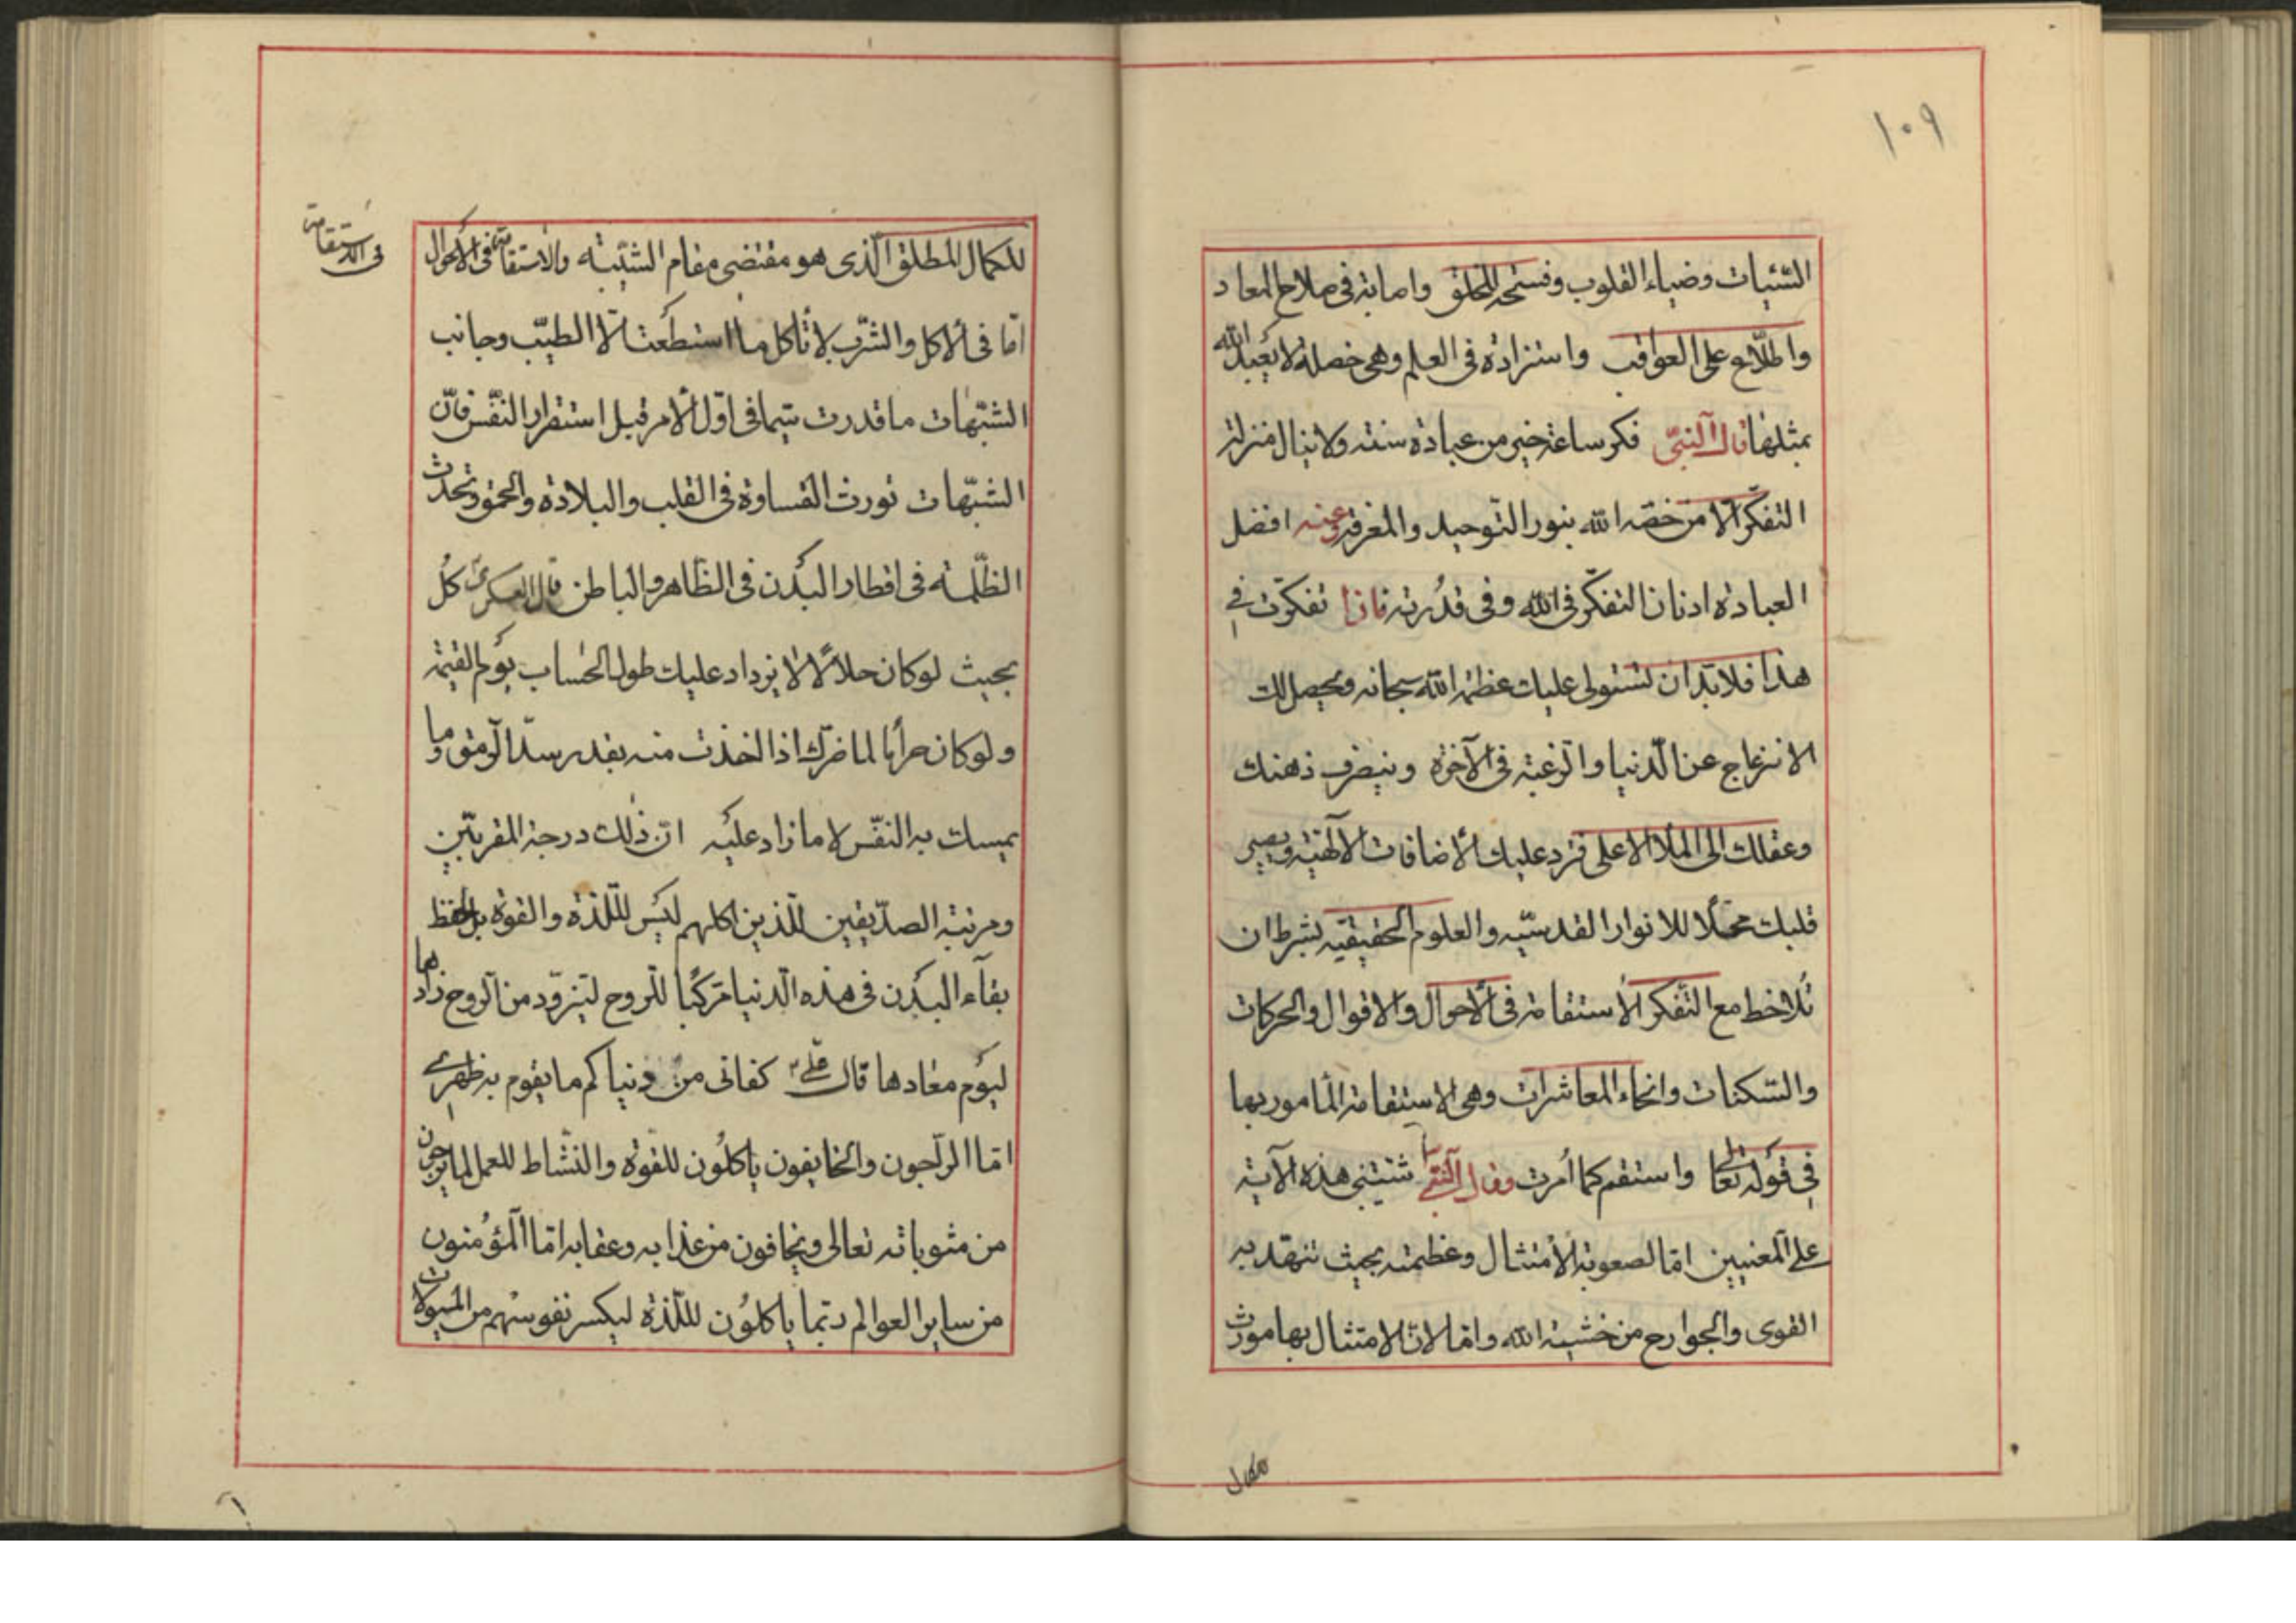 ١٠٩
السّيئات وضياء القلوب وفسحة للخلق واصابة فى صلاح المعاد
واطلّاع على العواقب واستزادة فى العلم وهى خصلة لا يعبد الله
بمثلها قال النبىّ فكر ساعة خير من عبادة سنة ولا ينال منزلة
التفكّر الا من خصّه الله بنور التّوحيد والمعرفة وعنه افضل
العبادة ادنان التفكّر فى الله وفى قدرته فاذا تفكّرت فى
هذا فلا بدّ ان تستولى عليك عظمة الله سبحانه ويحصل لك
الانزعاج عن الدّنيا والرّغبة فى الآخرة وينصرف ذهنك
وعقلك الى الملأ الاعلى فترد عليك الاضافات الالٓهيّة ويصير
قلبك محلّا للانوار القدسيّه والعلوم الحقيقيّه بشرط ان
تلاحظ مع التّفكر الأستقامة فى الأحوال والاقوال والحركات
والسّكنات وانحاء المعاشرات وهى الاستقامة المأمور بها
فى قوله تعالى واستقم كما اُمرت وقال النّبىّ شيّبتنى هذه الآية
على المعنيين امّا لصعوبة الأمتثال وعظمته بحيث تنهدّ به
القوى والجوارح من خشية الله وامّا لانّ الامتثال بها مورث
للكمال
للكمال المطلق الّذى هو مقتضى مقام الشيّبة والاستقامة فى الاحوال
فى الاستقامة
امّا فى الأكل والشّرب لا تأكل ما استطعت الّا الطيّب وجانب
الشّبهات ما قدرت سيّما فى اوّل الأمر قبل استقرار النّفس فانّ
الشّبهات تورث القساوة فى القلب والبلادة والحمق وتحدث
الظّلمة فى اقطار البدن فى الظّاهر والباطن قال العسكرىّ كُل
بحيث لو كان حلالًا لا يزداد عليك طول الحساب يوم القيٰمة
ولو كان حرامًا لما ضرّك اذا اخذت منه بقدر سدّ الرّمق وما
يمسك به النفّس لا ما زاد عليه انّ ذٰلك درجة المقربّين
ومرتبة الصدّيقين الّذين اكلهم ليس للّلذة والقوة بل لحفظ
بقاء البدن فى هذه الدّنيا مركبًا للّروح ليتزوّد من الرّوح زادها
ليوم معادها قال علىّ كفانى من دنياكم ما يقوم به ظهرى
امّا الرّاجون والخايفون يأكلون للقوة والنّشاط للعمل لما يرجون
من مثوباته تعالى ويخافون من عذابه وعقابه امّا المؤمنون
من ساير العوالم ربّما يأكلون للّلذة ليكسر نفوسهم من الميولات